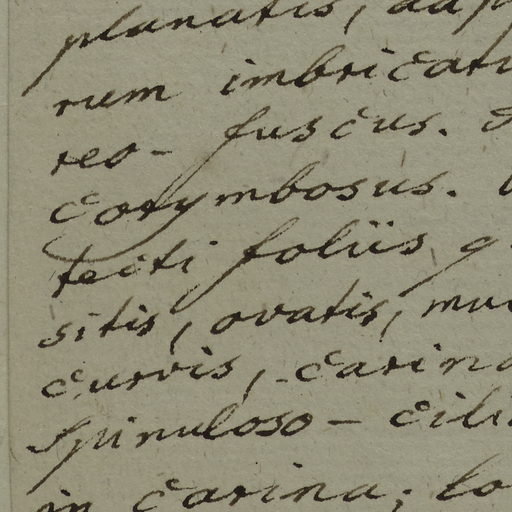 planatis, ad
rum imbricat
reo- fuscus.
corymbosus.
tecti foliis
sitis, ovatis, mu
curvis, carin
spinuloso- cili
in carina; lo